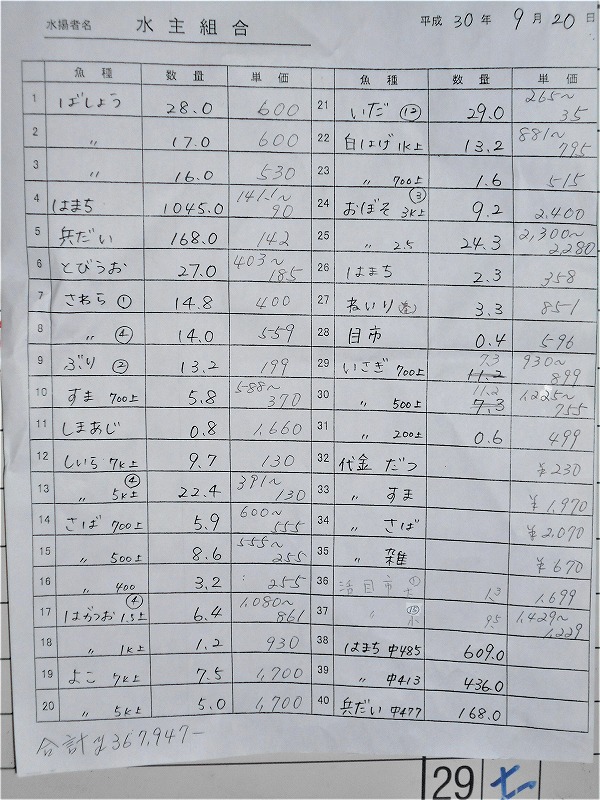 水揚者名 水主組合
平成 30 年 9 月 20 日
魚種 数量 単価 魚種 数量 単価
1 ばしょう 28.0 600
2 〃 17.0 600
3 〃 16.0 530
4 はまち 1045.0 141.1~90
5 兵だい 168.0 142
6 とびうお 27.0 403~185
7 さわら ① 14.8 400
8 〃 ④ 14.0 559
9 ぶり ② 13.2 199
10 すま 700上 5.8 588~370
11 しまあじ 0.8 1,660
12 しいら 7K上 9.7 130
13 〃 5K上 ④ 22.4 391~130
14 さば 700上 5.9 600~555
15 〃 500上 8.6 555~255
16 〃 400 3.2 255
17 はがつお 1.5上 ④ 6.4 1,080~861
18 〃 1K上 1.2 930
19 よこ 7K上 7.5 1,700
20 〃 5K上 5.0 1,700
21 いだ ⑫ 29.0 265~35
22 白はげ 1K上 13.2 881~795
23 〃 700上 1.6 515
24 おぼそ 3K上 ③ 9.2 2,400
25 〃 2.5 24.3 2,300~2280
26 はまち 2.3 358
27 ねいり 3.3 851
28 目市 0.4 596
29 いさぎ 700上 7.3 11.2 930~899
30 〃 500上 11.2 7.3 1,225~755
31 〃 200上 0.6 499
32 代金 だつ ¥230
33 〃 すま ¥1,970
34 〃 さば ¥2,070
35 〃 雑 ¥670
36 活目市 ① 大 1.3 1,699
37 〃 ⑬ 小 9.5 1,429~1,229
38 はまち 中485 609.0
39 〃 中413 436.0
40 兵だい 中477 168.0
合計¥367,947-
29 七